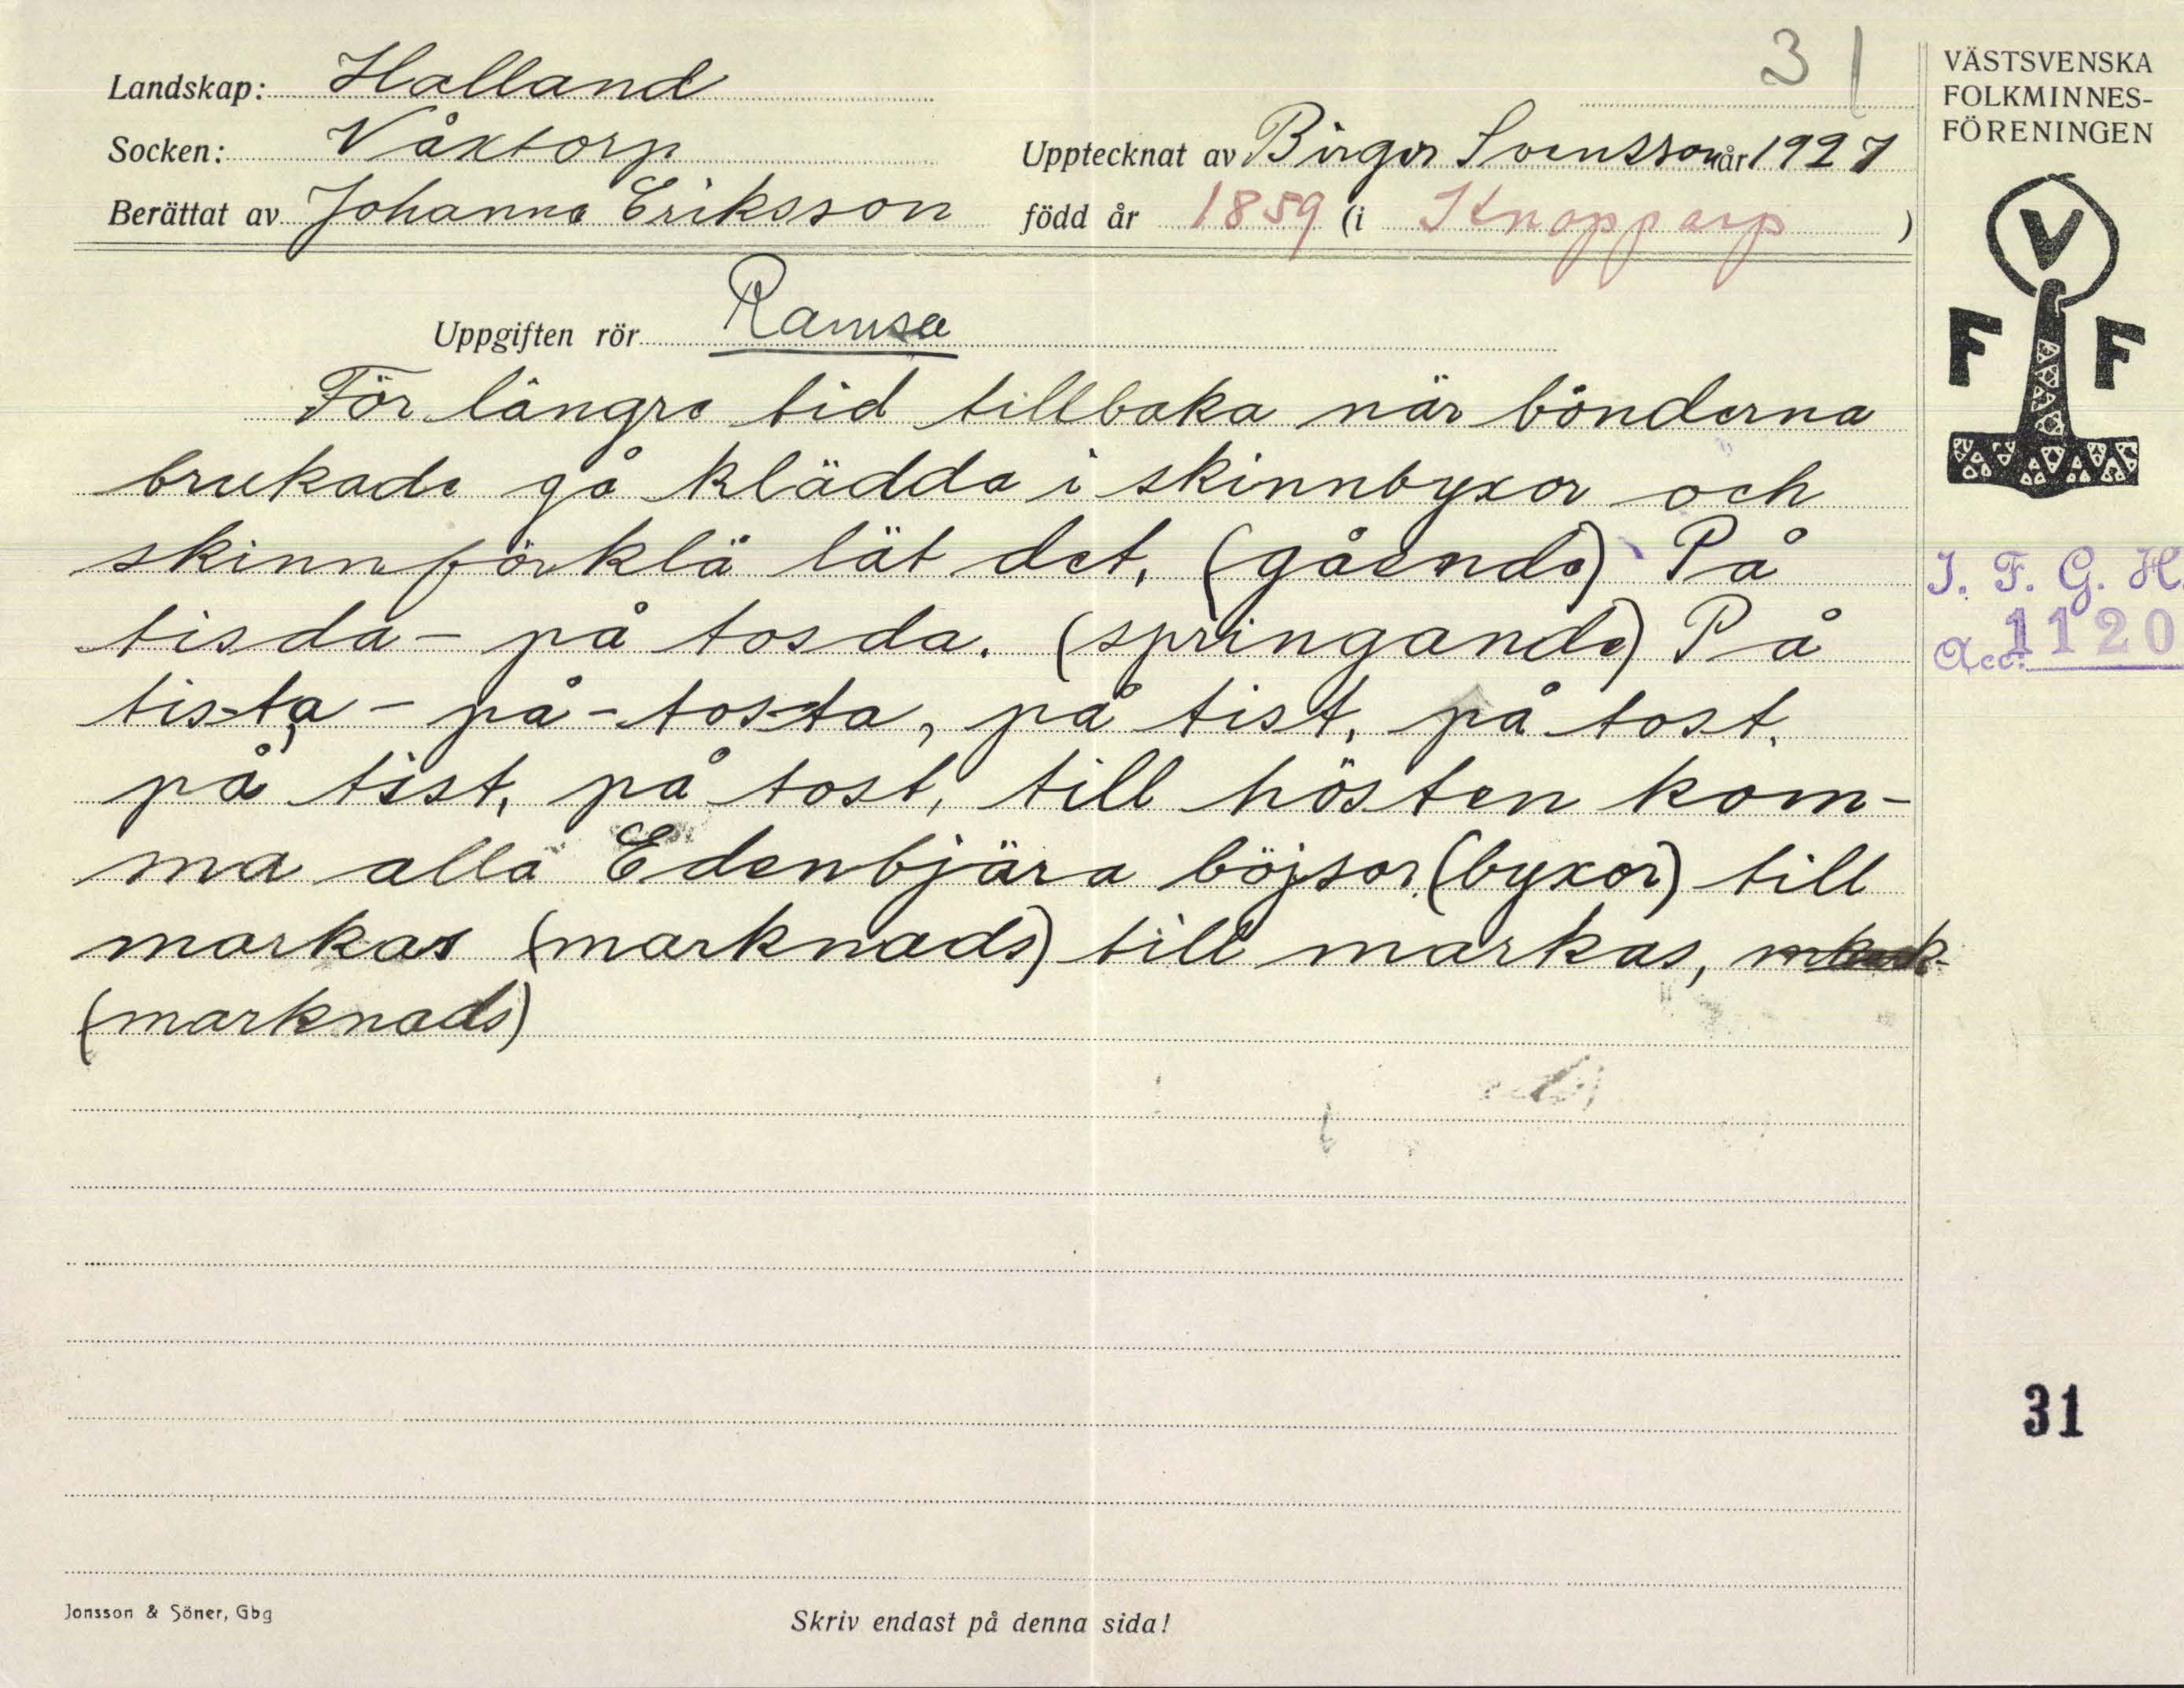 31
Landskap: Halland
Socken: Våxtorp
Upptecknat av Birger Svensson år 1927
Berättat av Johanna Eriksson född år 1859 (i Knopparp)
Uppgiften rör Ramsa
För längre tid tillbaka när bönderna
brukade gå klädda i skinnbyxor och
skinnförklä lät det, (gående) På
tisda - på tosda. (springande) På
tis-ta - på - tos-ta, på tist, på tost,
på tist, på tost, till hösten kom-
ma alla Edenbjära böjsor (byxor) till
markas (marknads) till markas,
(marknads)
Jonsson & Söner, Gbg
Skriv endast på denna sida!
VÄSTSVENSKA
FOLKMINNES-
FÖRENINGEN
V
F F
I. F. G. H.
Acc: 1120
31